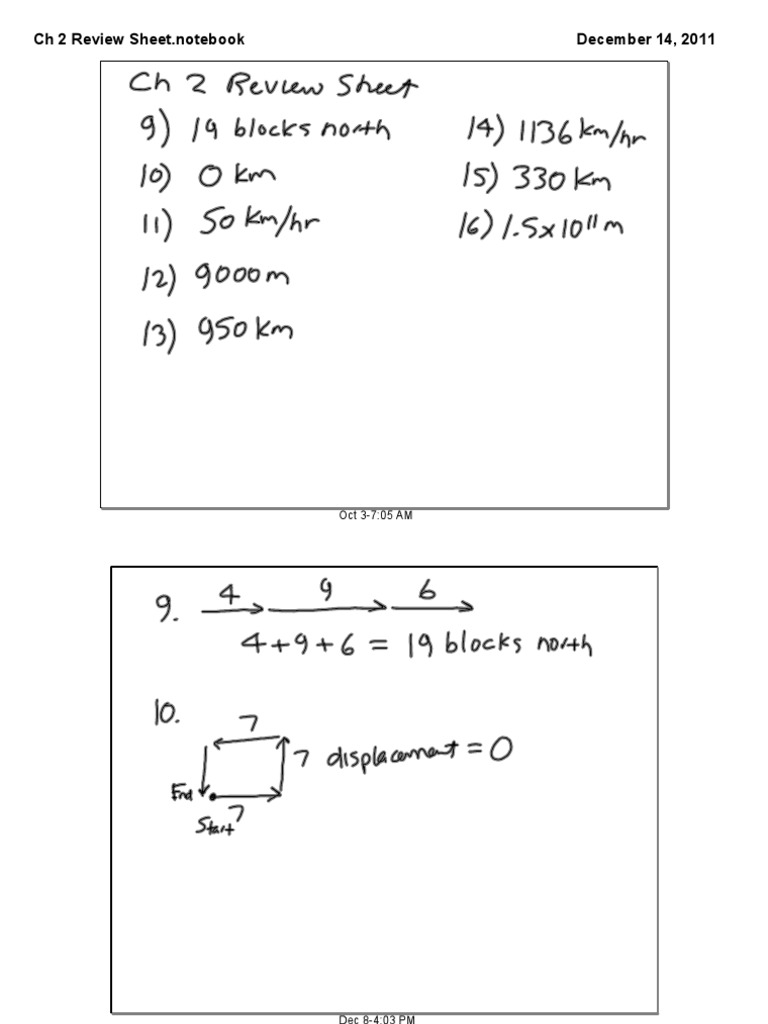 Ch 2 Review Sheet.notebook
December 14, 2011
Ch 2 Review Sheet
9) 19 blocks north
10) 0 km
11) 50 km/hr
12) 9000 m
13) 950 km
14) 1136 km/hr
15) 330 km
16) 1.5x10¹¹ m
Oct 3-7:05 AM
9. 4 9 6
4+9+6 = 19 blocks north
10. 7
7 displacement = 0
End
7
Start
Dec 8-4:03 PM